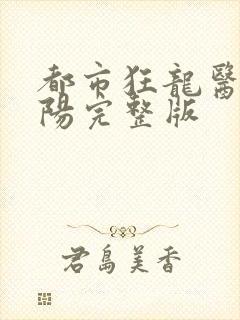 都市狂龍醫
陽完整版
君島美香